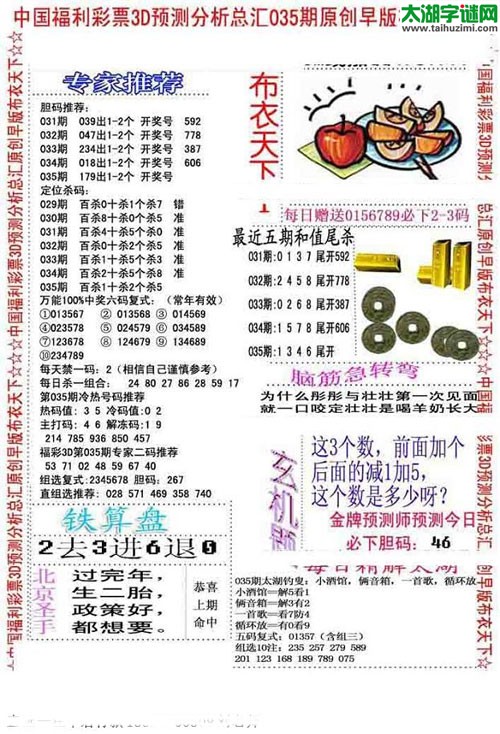 中国福利彩票3D预测分析总汇035期原创早版
太湖字谜网
www.taihuzimi.com
专家推荐
胆码推荐:
031期 039出1-2个 开奖号 592
032期 047出1-2个 开奖号 778
033期 234出1-2个 开奖号 387
034期 018出1-2个 开奖号 606
035期 179出1-2个 开奖号
定位杀码:
029期 百杀0十杀1个杀7 错
030期 百杀8十杀0个杀5 准
031期 百杀4十杀2个杀5 准
032期 百杀1十杀5个杀6 准
033期 百杀1十杀7个杀5 准
034期 百杀2十杀5个杀8 准
035期 百杀1十杀2个杀5
万能100%中奖六码复式: (常年有效)
①013567 ② 013568 ③ 014569
④023578 ⑤ 024579 ⑥ 034579
⑦123678 ⑧ 124679 ⑨ 134689
⑩234789
每天禁一码: 2 (相信自己谨慎参考)
每日杀一组合: 24 80 27 86 28 59 17
第035期冷热号码推荐
热码值: 3 5 冷码值:0 2
主打码: 4 6 解冻码:1 9
214 785 936 850 457
福彩3D第035期专家二码推荐
53 71 02 48 59 67 40
组选复式:2345678 胆码: 267
直组选推荐: 028 571 469 358 740
铁算盘
2去3进6退9
北京圣于
过完年,
生二胎,
政策好,
都想要。
恭喜
上期
命中
布衣天下
每日赠送0156789必下2-3码
最近五期和值尾杀
031期:0 1 3 7 尾开592
032期:2 4 5 8 尾开778
033期:0 2 6 8 尾开387
034期:1 5 7 8 尾开606
035期:1 3 4 6 尾开
脑筋急转弯
为什么彤彤与壮壮第一次见面
就一口咬定壮壮是喝羊奶长大
玄机题
这3个数,前面加个
后面的减1加5,
这个数是多少呀?
金牌预测师预测今日
必下胆码: 46
每日精解太湖
035期太湖钓叟: 小酒馆,俩音箱,一首歌,循环放
小酒馆==解5看1
俩音箱==解3有2
一首歌==看7防4
循环放==有0看9
五码复式: 01357 (含组三)
组选10注: 235 257 279 589
201 123 168 189 789 075
中国福利彩票3D预测分析总汇原创早版布衣天下☆☆☆